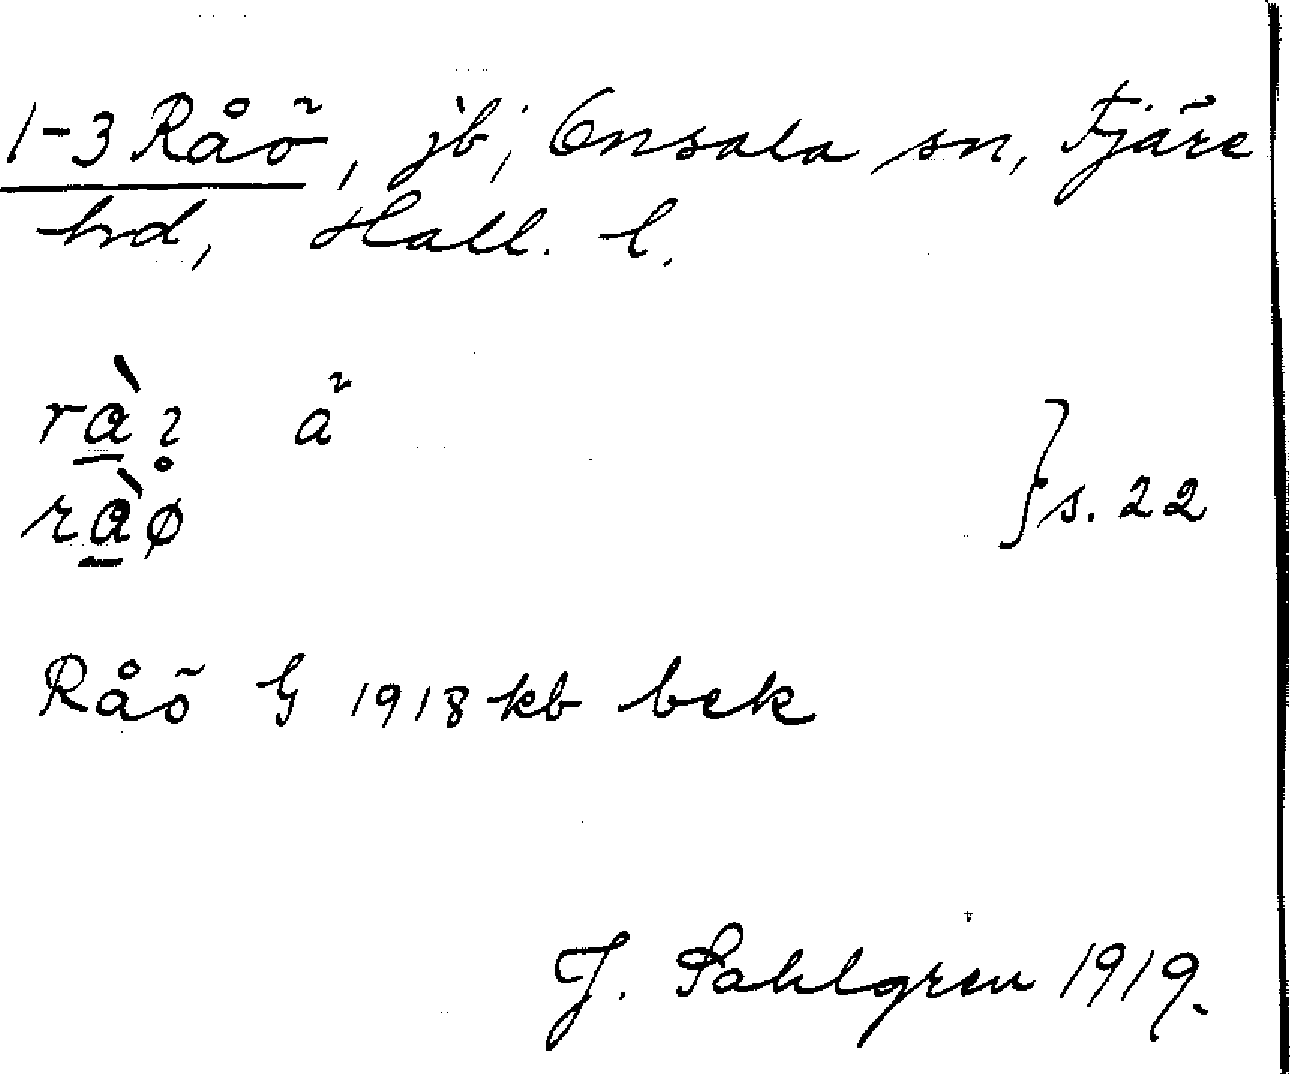 1-3 Råö, jb, Onsala sn, Fjäre
hrd, Hall. l.
rà̱ɂ å̃
rà̱ø̊ } s. 22
Råö G 1918 kb bek
J. Sahlgren 1919.